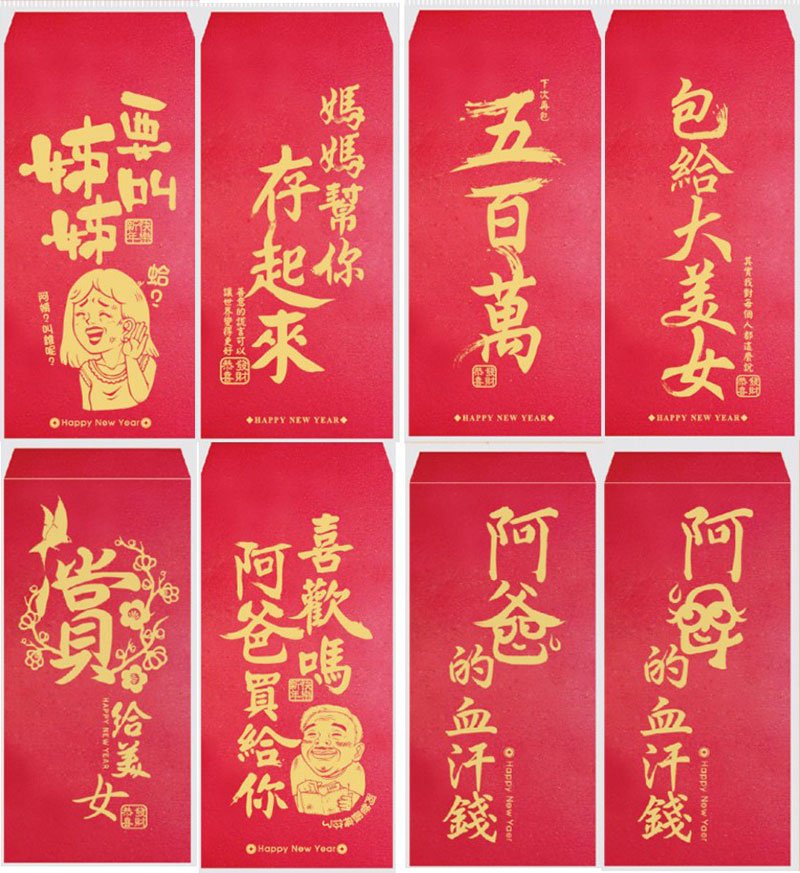 要叫
姊姊
快樂
新年
蛤?
叫誰呢?
Happy New Year
媽媽幫你
存起來
善意的謊言可以
讓世界變得更好
發財
恭喜
HAPPY NEW YEAR
下次再包
五百萬
HAPPY NEW YEAR
包給大美女
其實我對每個人都這麼說
發財
恭喜
HAPPY NEW YEAR
賞
給美女
HAPPY NEW YEAR
發財
恭喜
喜歡嗎
阿爸買給你
快樂
新年
Happy New Year
阿爸
的血汗錢
Happy New Yaer
阿母
的血汗錢
Happy New Yaer